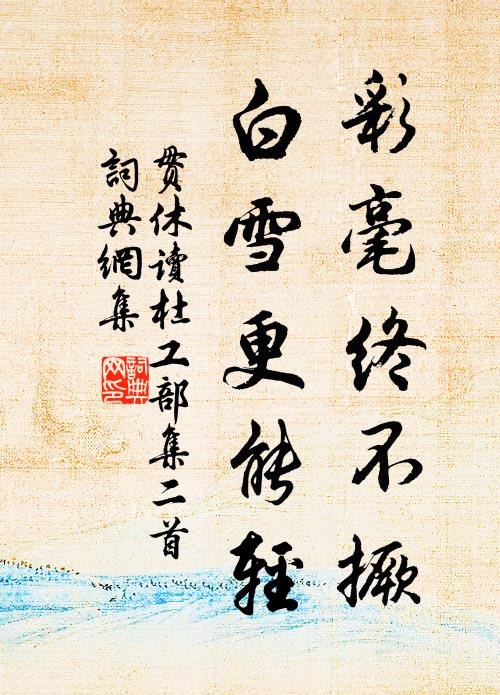 彩毫終不撅
白雪更能輕
貫休讀杜工部集二首
詞典網集
詞典網印